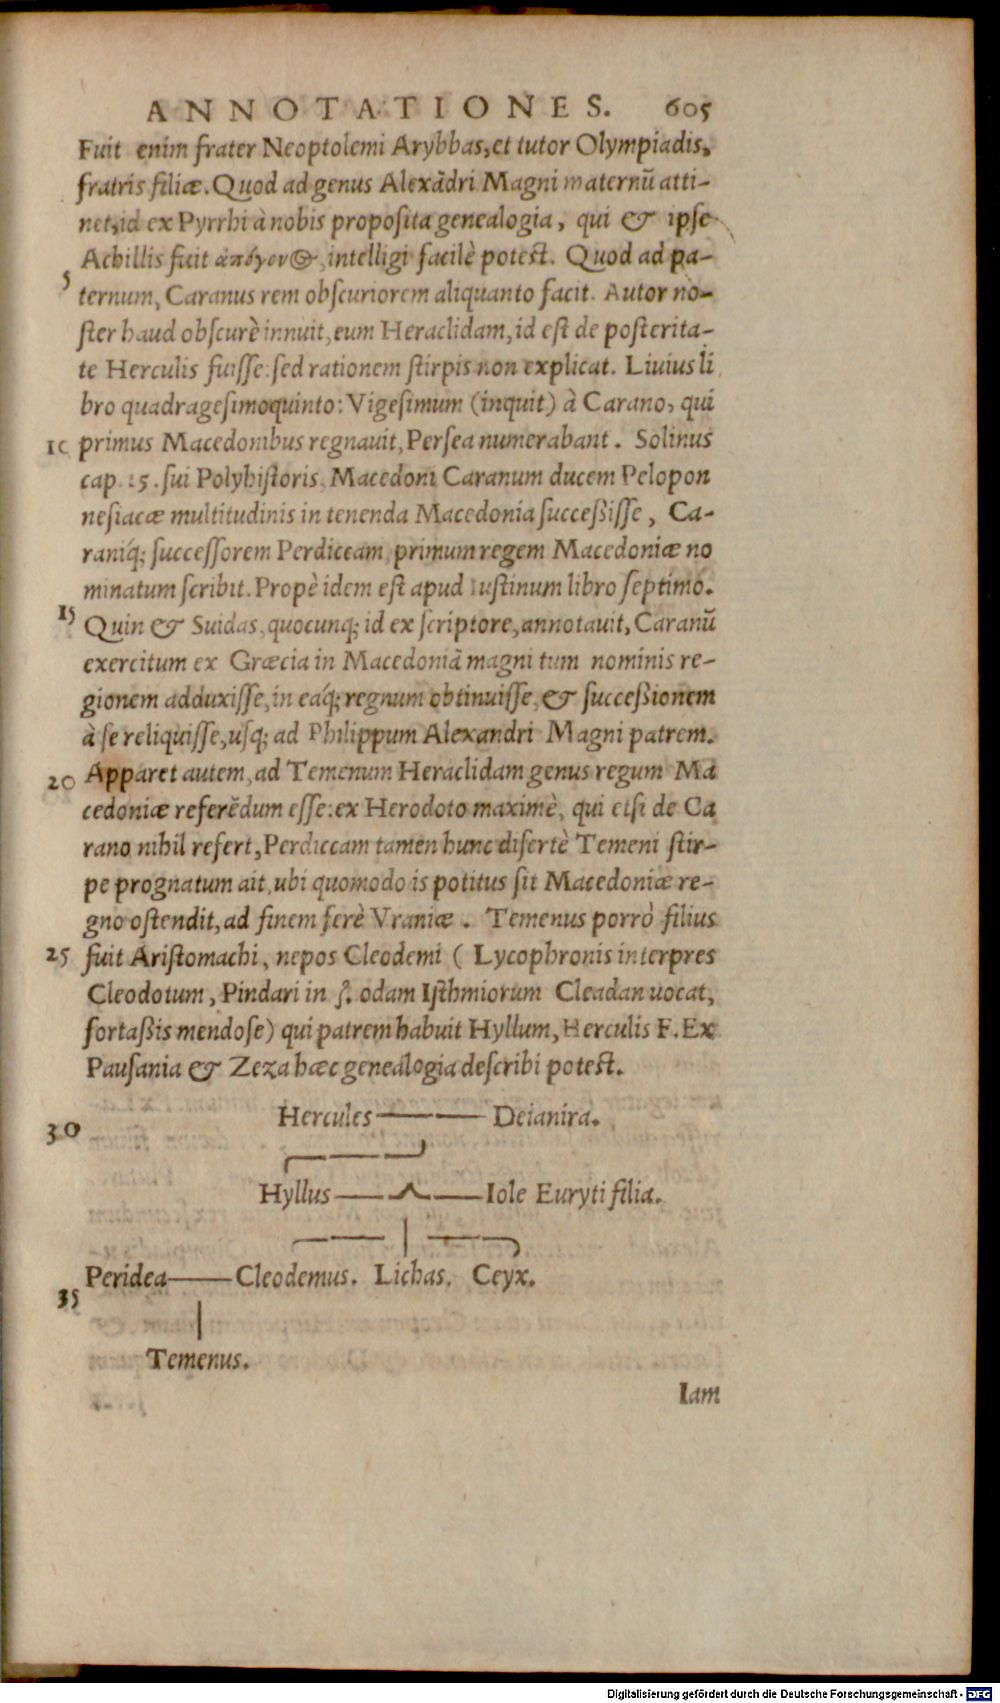 ANNOTATIONES. 605
Fuit enim frater Neoptolemi Arybbas, et tutor Olympiadis,
fratris filiæ. Quod ad genus Alexãdri Magni maternũ atti-
net, id ex Pyrrhi à nobis proposita genealogia, qui & ipse
Achillis fuit ἀπόγονος, intelligi facilè potest. Quod ad pa-
5 ternum, Caranus rem obscuriorem aliquanto facit. Autor no-
ster haud obscurè innuit, eum Heraclidam, id est de posterita-
te Herculis fuisse: sed rationem stirpis non explicat. Liuius li
bro quadragesimoquinto: Vigesimum (inquit) à Carano, qui
10 primus Macedonibus regnauit, Persea numerabant. Solinus
cap. 15. sui Polyhistoris, Macedoni Caranum ducem Pelopon
nesiacæ multitudinis in tenenda Macedonia successisse, Ca-
raniq́; successorem Perdiccam, primum regem Macedoniæ no
minatum scribit. Propè idem est apud Iustinum libro septimo.
15 Quin & Suidas, quocunq; id ex scriptore, annotauit, Caranũ
exercitum ex Græcia in Macedoniã magni tum nominis re-
gionem adduxisse, in eaq́; regnum obtinuisse, & successionem
à se reliquisse, usq; ad Philippum Alexandri Magni patrem.
20 Apparet autem, ad Temenum Heraclidam genus regum Ma
cedoniæ referẽdum esse: ex Herodoto maximè, qui etsi de Ca
rano nihil refert, Perdiccam tamen hunc disertè Temeni stir-
pe prognatum ait, ubi quomodo is potitus sit Macedoniæ re-
gno ostendit, ad finem ferè Vraniæ. Temenus porrò filius
25 fuit Aristomachi, nepos Cleodemi ( Lycophronis interpres
Cleodotum, Pindari in ζ. odam Isthmiorum Cleadan uocat,
fortassis mendose) qui patrem habuit Hyllum, Herculis F. Ex
Pausania & Zeza hæc genealogia describi potest.
Hercules Deianira.
30
Hyllus Iole Euryti filia.
Peridea Cleodemus. Lichas. Ceyx.
35
Temenus.
Iam
Digitalisierung gefördert durch die Deutsche Forschungsgemeinschaft - DFG